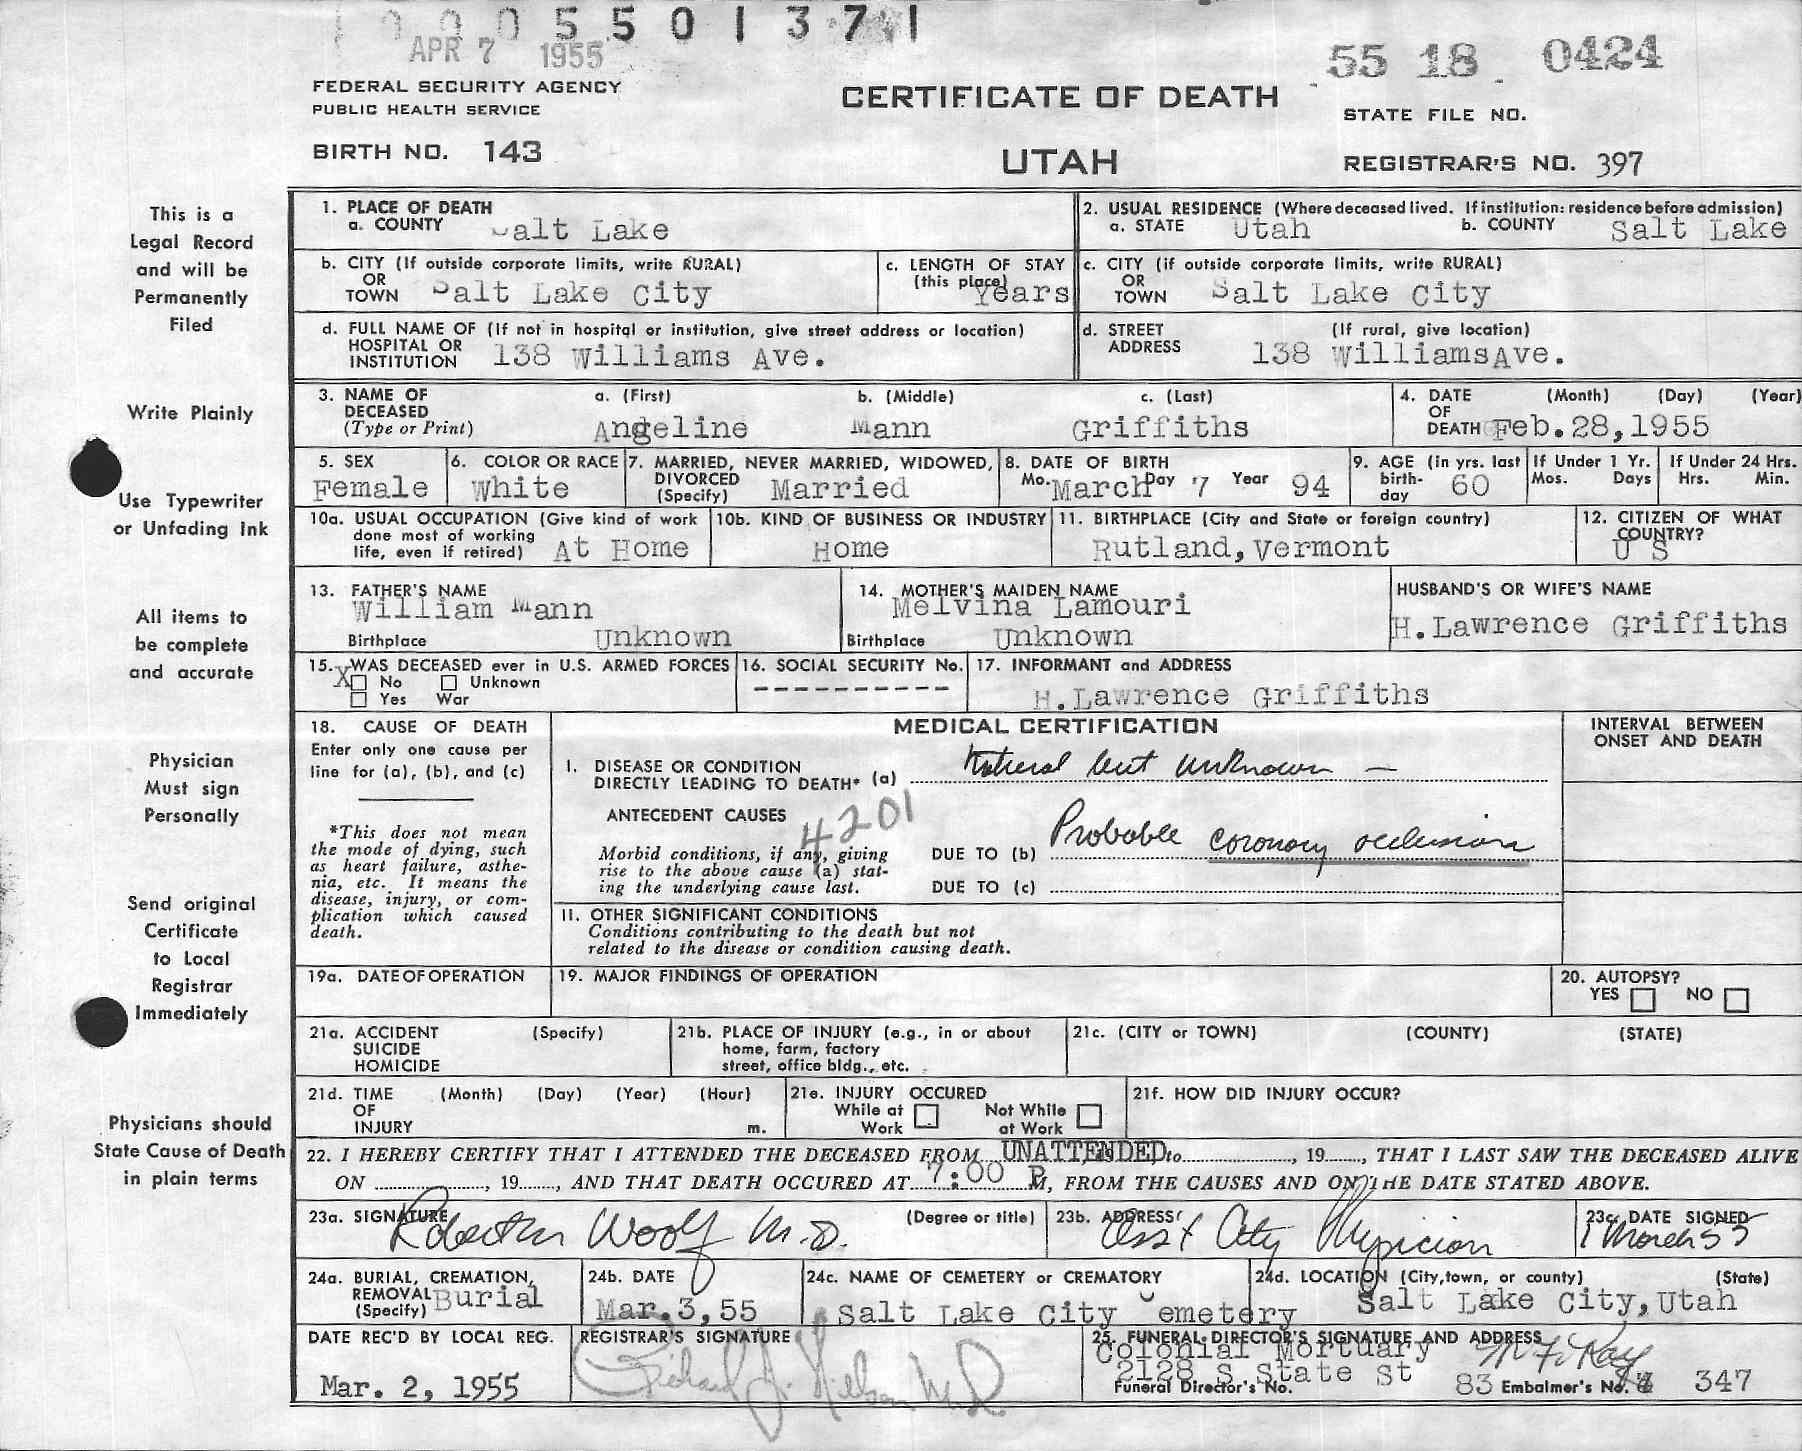 1 0 0 0 5 5 0 1 3 7 1 1
APR 7 1955
55 18 0424
FEDERAL SECURITY AGENCY
PUBLIC HEALTH SERVICE
CERTIFICATE OF DEATH
STATE FILE NO.
BIRTH NO. 143
UTAH
REGISTRAR'S NO. 397
This is a
Legal Record
and will be
Permanently
Filed
Write Plainly
Use Typewriter
or Unfading Ink
All items to
be complete
and accurate
Physician
Must sign
Personally
Send original
Certificate
to Local
Registrar
Immediately
Physicians should
State Cause of Death
in plain terms
1. PLACE OF DEATH
a. COUNTY Salt Lake
2. USUAL RESIDENCE (Where deceased lived. If institution: residence before admission)
a. STATE Utah b. COUNTY Salt Lake
b. CITY (If outside corporate limits, write RURAL)
OR
TOWN Salt Lake City
c. LENGTH OF STAY
(this place) Years
c. CITY (if outside corporate limits, write RURAL)
OR
TOWN Salt Lake City
d. FULL NAME OF (If not in hospital or institution, give street address or location)
HOSPITAL OR
INSTITUTION 138 Williams Ave.
d. STREET (If rural, give location)
ADDRESS 138 WilliamsAve.
3. NAME OF a. (First) b. (Middle) c. (Last)
DECEASED
(Type or Print) Angeline Mann Griffiths
4. DATE (Month) (Day) (Year)
OF
DEATH Feb.28,1955
5. SEX
Female
6. COLOR OR RACE
White
7. MARRIED, NEVER MARRIED, WIDOWED,
DIVORCED
(Specify) Married
8. DATE OF BIRTH
Mo. March Day 7 Year 94
9. AGE (in yrs. last
birth-
day 60
If Under 1 Yr.
Mos. Days
If Under 24 Hrs.
Hrs. Min.
10a. USUAL OCCUPATION (Give kind of work
done most of working
life, even if retired) At Home
10b. KIND OF BUSINESS OR INDUSTRY
Home
11. BIRTHPLACE (City and State or foreign country)
Rutland, Vermont
12. CITIZEN OF WHAT
COUNTRY?
U S
13. FATHER'S NAME
William Mann
Birthplace Unknown
14. MOTHER'S MAIDEN NAME
Melvina Lamouri
Birthplace Unknown
HUSBAND'S OR WIFE'S NAME
H.Lawrence Griffiths
15. WAS DECEASED ever in U.S. ARMED FORCES
X No Unknown
Yes War
16. SOCIAL SECURITY No.
----------
17. INFORMANT and ADDRESS
H.Lawrence Griffiths
18. CAUSE OF DEATH
Enter only one cause per
line for (a), (b), and (c)
*This does not mean
the mode of dying, such
as heart failure, asthe-
nia, etc. It means the
disease, injury, or com-
plication which caused
death.
MEDICAL CERTIFICATION
INTERVAL BETWEEN
ONSET AND DEATH
I. DISEASE OR CONDITION
DIRECTLY LEADING TO DEATH* (a) Natural but unknown —
ANTECEDENT CAUSES 4201
Morbid conditions, if any, giving
rise to the above cause (a) stat-
ing the underlying cause last.
DUE TO (b) Probable coronary occlusion
DUE TO (c)
II. OTHER SIGNIFICANT CONDITIONS
Conditions contributing to the death but not
related to the disease or condition causing death.
19a. DATE OF OPERATION
19. MAJOR FINDINGS OF OPERATION
20. AUTOPSY?
YES NO
21a. ACCIDENT (Specify)
SUICIDE
HOMICIDE
21b. PLACE OF INJURY (e.g., in or about
home, farm, factory
street, office bldg., etc.
21c. (CITY or TOWN) (COUNTY) (STATE)
21d. TIME (Month) (Day) (Year) (Hour)
OF
INJURY m.
21e. INJURY OCCURED
While at Work Not While at Work
21f. HOW DID INJURY OCCUR?
22. I HEREBY CERTIFY THAT I ATTENDED THE DECEASED FROM UNATTENDED to , 19 , THAT I LAST SAW THE DECEASED ALIVE
ON , 19 , AND THAT DEATH OCCURED AT 7:00 P M, FROM THE CAUSES AND ON THE DATE STATED ABOVE.
23a. SIGNATURE (Degree or title)
Woolf M.D.
23b. ADDRESS
Ass't City Physician
23c. DATE SIGNED
1 March 55
24a. BURIAL, CREMATION,
REMOVAL
(Specify) Burial
24b. DATE
Mar.3,55
24c. NAME OF CEMETERY or CREMATORY
Salt Lake City Cemetery
24d. LOCATION (City,town, or county) (State)
Salt Lake City, Utah
DATE REC'D BY LOCAL REG.
Mar. 2, 1955
REGISTRAR'S SIGNATURE
Richard J. Nilson M.D.
25. FUNERAL DIRECTOR'S SIGNATURE AND ADDRESS
Colonial Mortuary
2128 S State St
Funeral Director's No. 83 Embalmer's No. 347